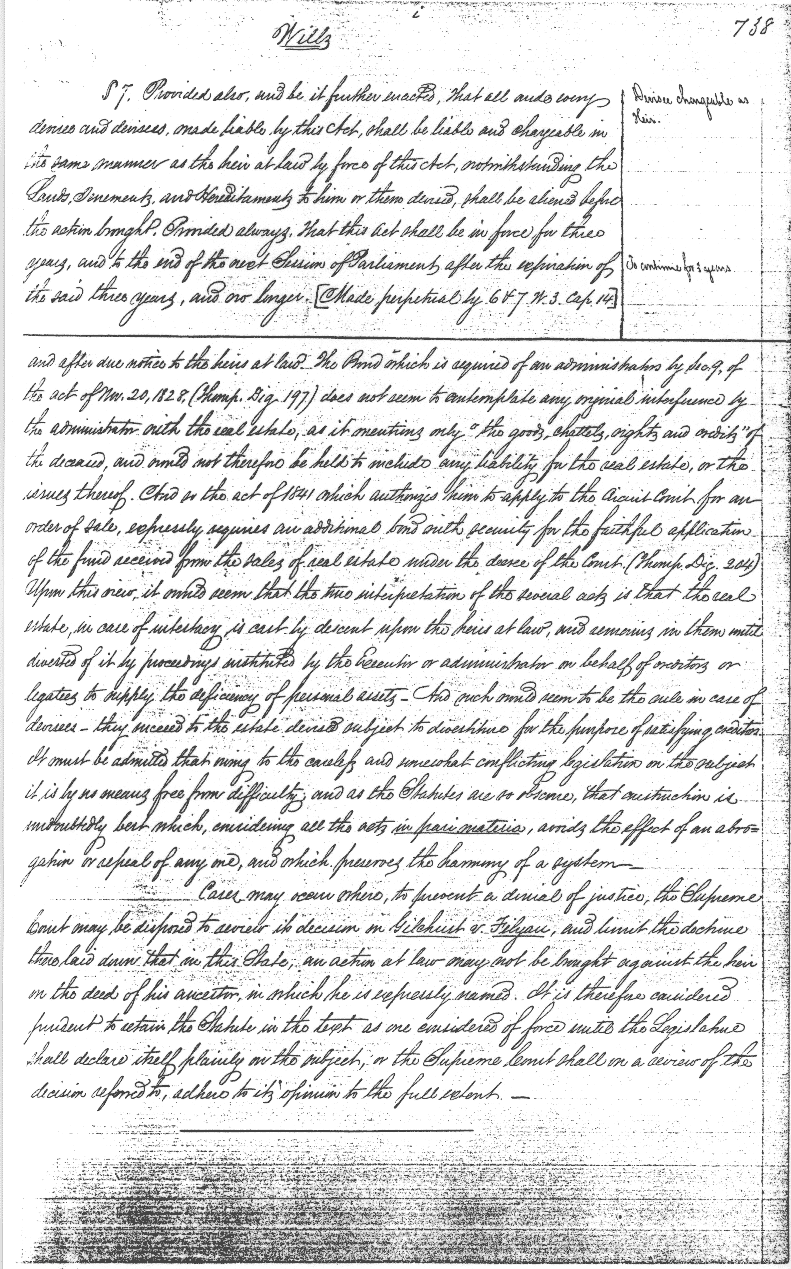 i
Wills
738
§ 7. Provided also, and be it further enacted, that all and every
devisee and devisees, made liable by this Act, shall be liable and chargeable in
the same manner as the heir at law by force of this Act, notwithstanding the
Lands, Tenements, and Hereditaments to him or them devised, shall be aliened before
the action brought. Provided always, that this act shall be in force for three
years, and to the end of the next Session of Parliament after the expiration of
the said three years, and no longer. [Made perpetual by 6 & 7 W. 3. Cap. 14]
Devisee chargeable as
Heir.
To continue for 3 years
and after due notice to the heirs at law. The Bond which is required of an administrator by Sec. 9, of
the act of Nov. 20, 1828, (Thomp. Dig. 197) does not seem to contemplate any original interference by
the administrator with the real estate, as it mentions only "the goods, chattels, rights and credits" of
the deceased, and would not therefore be held to include any liability for the real estate, or the
issues thereof. And so the act of 1841 which authorizes him to apply to the Circuit Court for an
order of sale, expressly requires an additional bond with security for the faithful application
of the fund received from the sales of real estate under the decree of the Court. (Thomp. Dig. 204)
Upon this view, it would seem that the true interpretation of the several acts is that the real
estate, in case of intestacy is cast by descent upon the heirs at law, and remains in them until
divested of it by proceedings instituted by the Executor or administrator on behalf of creditors or
legatees to supply the deficiency of personal assets – And such would seem to be the rule in case of
devisees – they succeed to the estate devised subject to divestiture for the purpose of satisfying creditors.
It must be admitted that owing to the careless and somewhat conflicting legislation on the subject
it is by no means free from difficulty; and as the Statutes are so obscure, that construction is
undoubtedly best which, considering all the acts in pari materia, avoids the effect of an abro=
gation or repeal of any one, and which preserves the harmony of a system —
Cases may occur where, to prevent a denial of justice, the Supreme
Court may be disposed to review its decision in Gilchrist v. Filyau, and limit the doctrine
there laid down that in this State, an action at law may not be brought against the heir
on the deed of his ancestor, in which he is expressly named. It is therefore considered
prudent to retain the Statute in the text as one considered of force until the Legislature
shall declare itself plainly on the subject, or the Supreme Court shall on a review of the
decision referred to, adhere to its opinion to the full extent. —